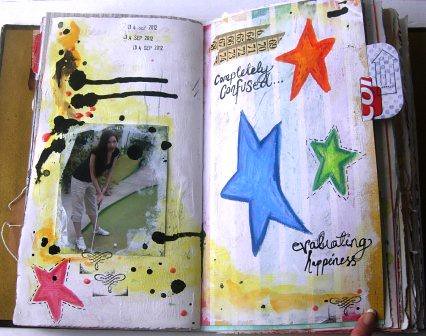 SEP 2012
SEP 2012
SEP 2012
completely
confused...
evaluating
happiness